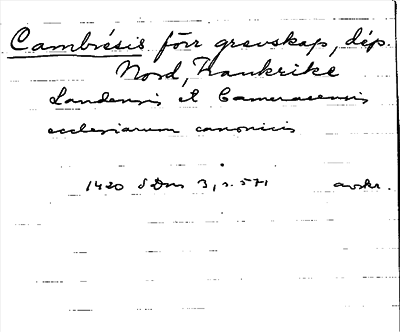 Cambrésis förr grevskap, dép.
Nord, Frankrike
Laudensis et Cameracensis
ecclesiarum canonicis
1420 SDns 3, s. 571 avskr.